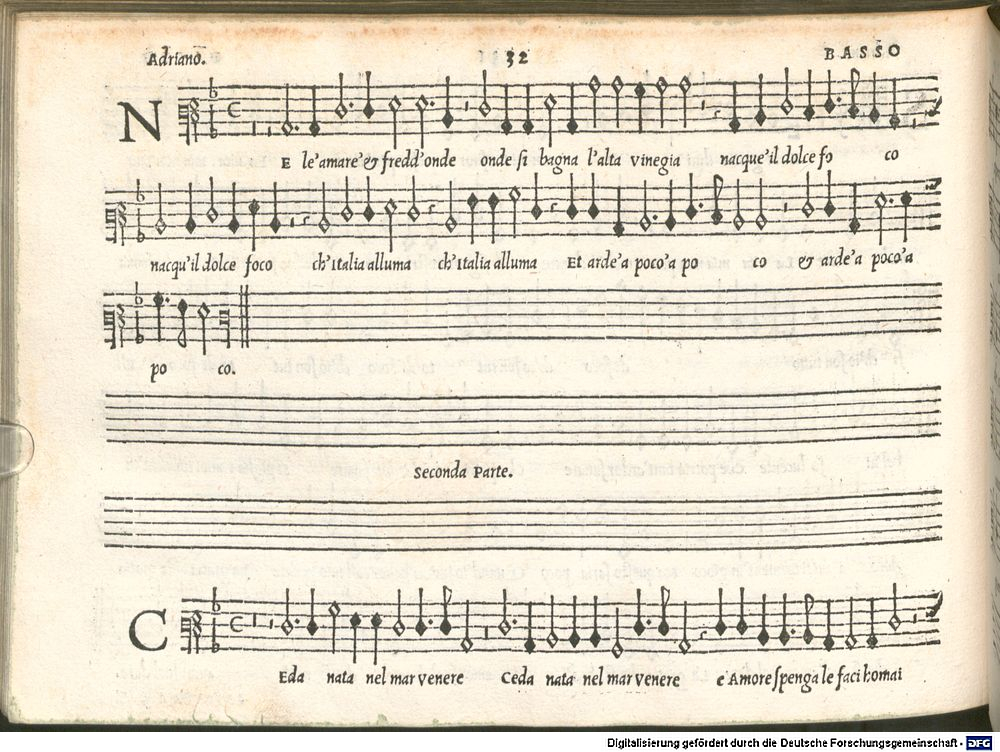 Adriano. 32 BASSO
NE le'amare'& fredd'onde onde si bagna l'alta vinegia nacque'il dolce fo co
nacqu'il dolce foco ch'Italia alluma ch'Italia alluma Et arde'a poco'a po co & arde'a poco'a
po co.
Seconda Parte.
CEda nata nel mar venere Ceda nata nel mar venere e Amore spenga le faci homai
Digitalisierung gefördert durch die Deutsche Forschungsgemeinschaft - DFG